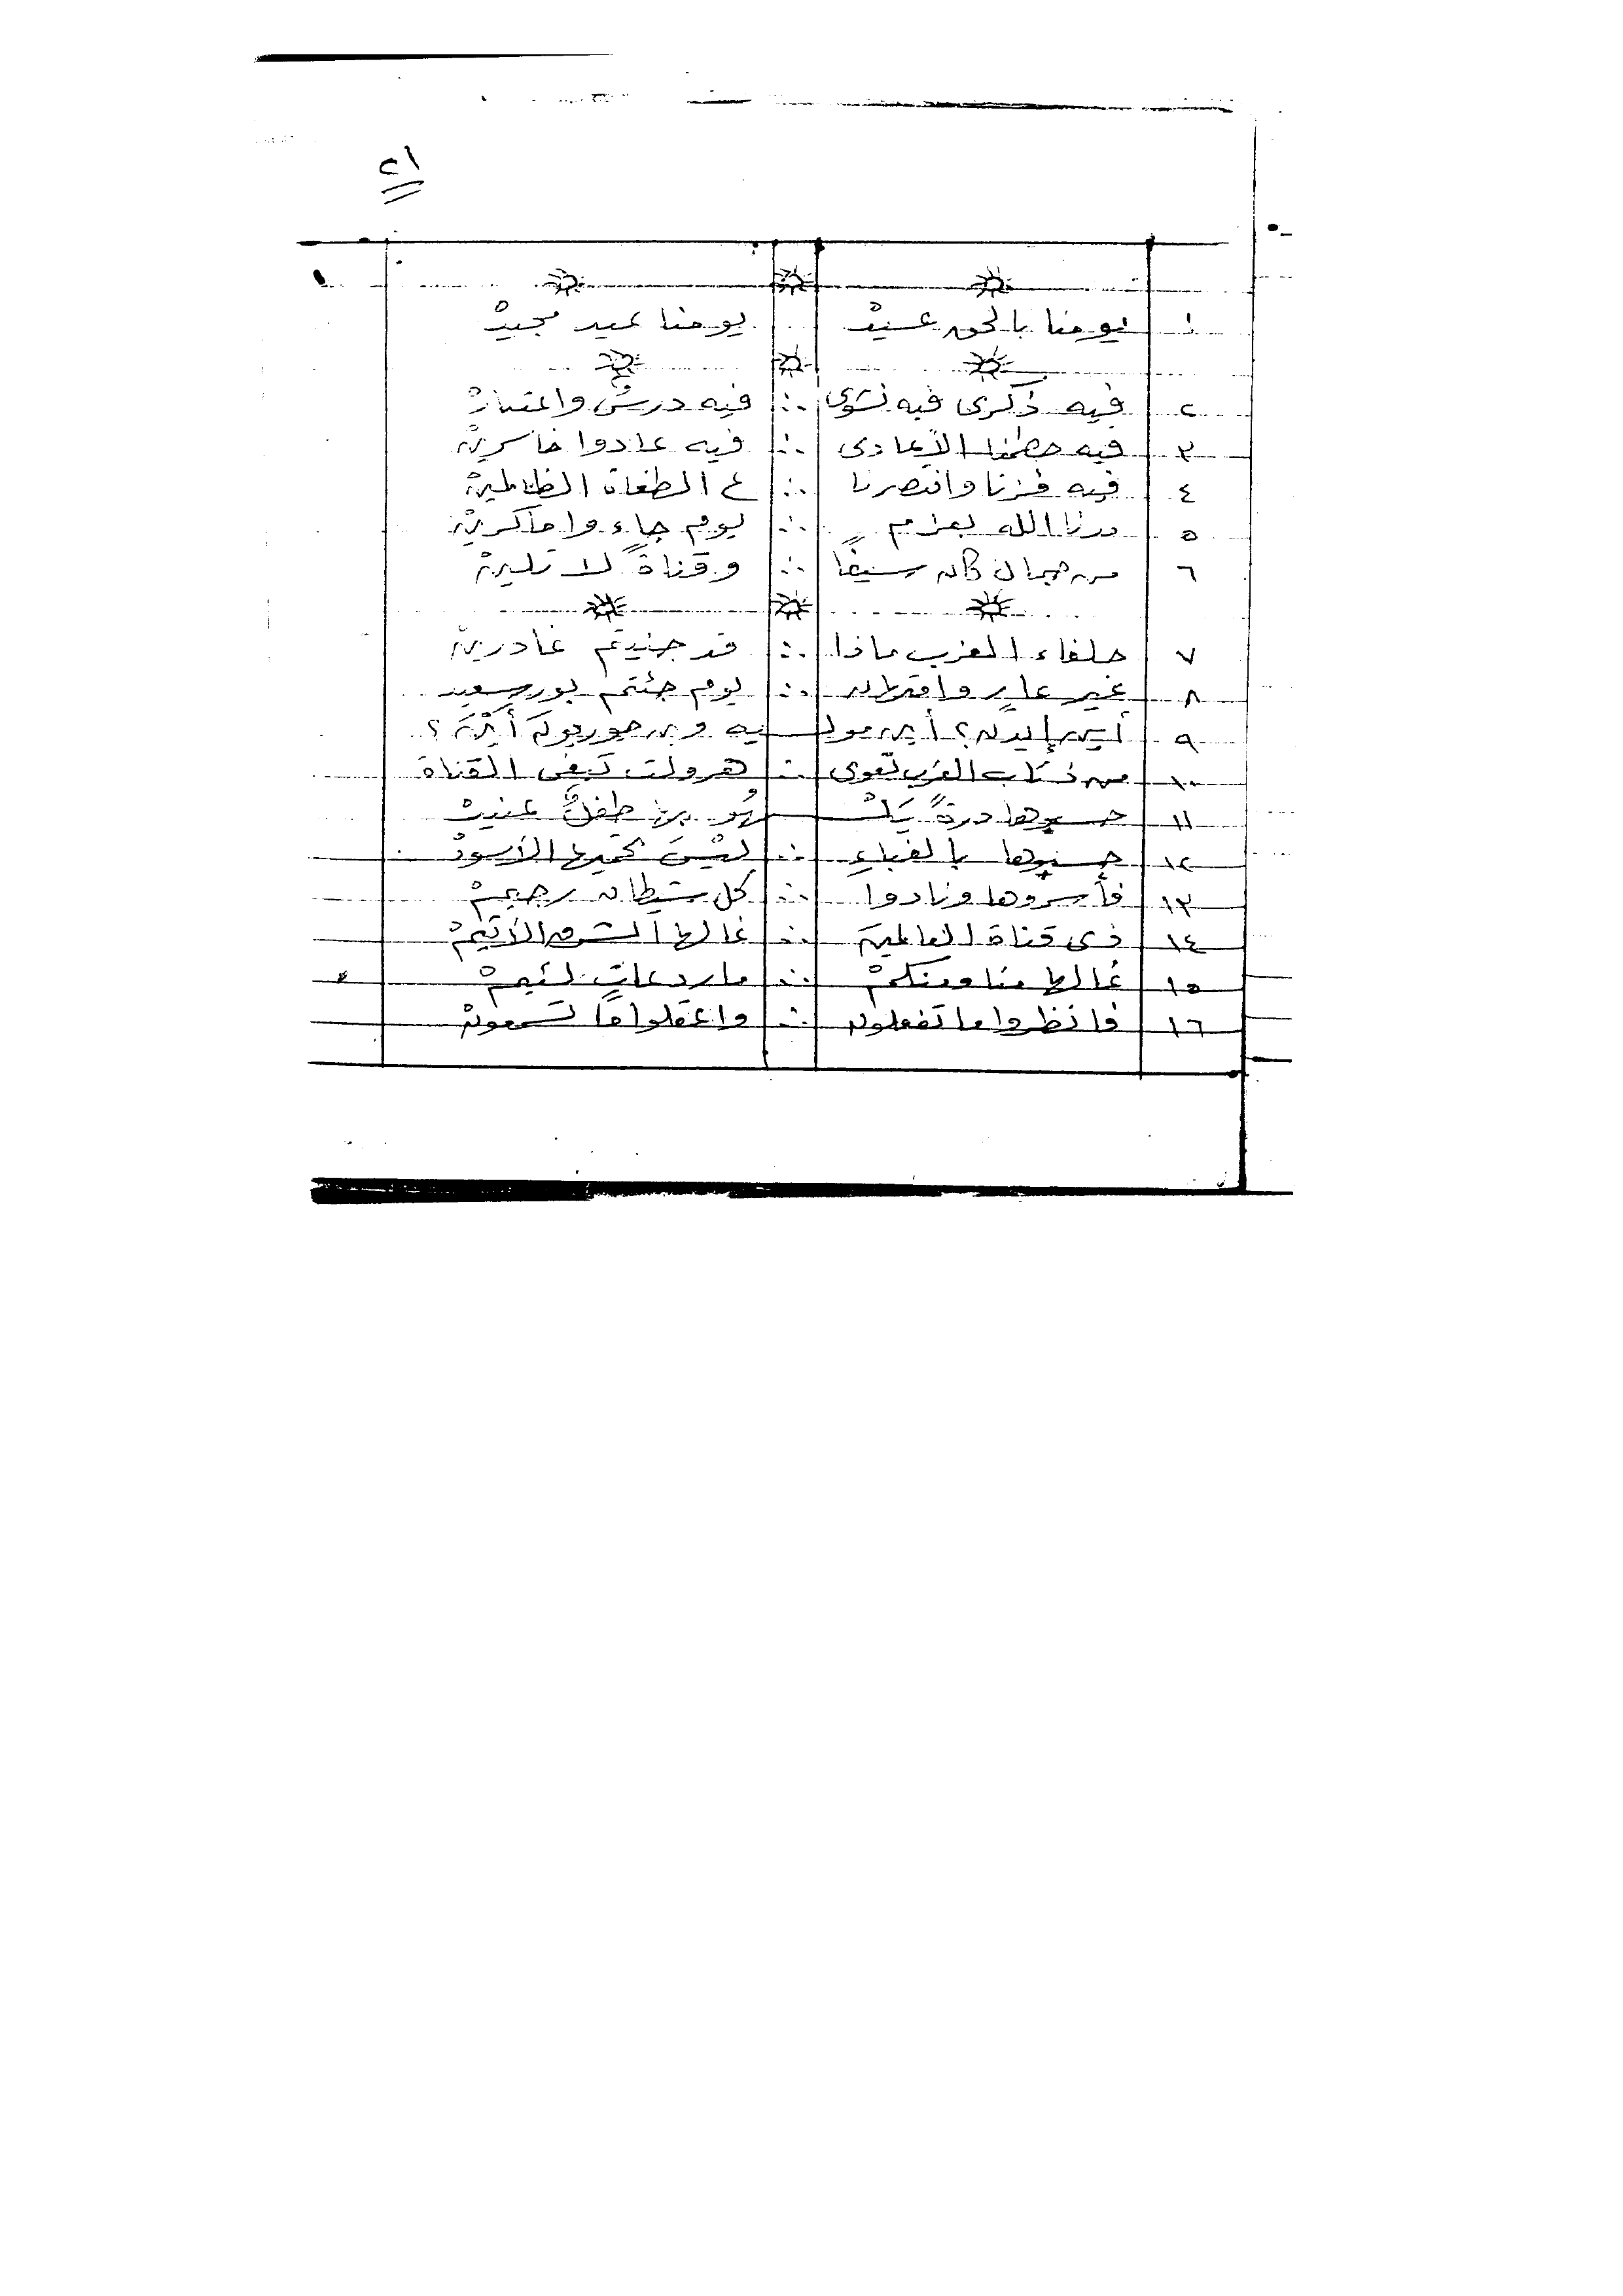 ٢١
١ يومنا بالحق عيد يومنا عيد مجيدْ
٢ فيه ذكرى فيه نشوى ∴ فيه درسٌ واعتبارْ
٣ فيه حطمنا الأعادى ∴ فيه عادوا خاسرينْ
٤ فيه فزنا وانتصرنا ∴ ع الطغاة الظالمينْ
٥ الله بعزم ∴ يوم جاءوا ماكرينْ
٦ من جمال كان سيفًا ∴ وقناةً لا تلينْ
٧ حلفاء الغرب ماذا ∴ قد جنيتم غادرينْ
٨ غير عارٍ وافتراء ∴ يوم جئتم بورسعيد
٩ أين إيدن؟ أين موليه وبن جوريون أَيْنَ؟
١٠ من ذئاب الغرب تعوى ∴ هرولت تبغى القناة
١١ حسبوها درةً يلْهُو بها طفلٌ عنيدْ
١٢ حسبوها بالغباءِ ∴ ليْسَ تحميها الأسودْ
١٣ فأسروها ونادوا ∴ كل شيطان رجيمْ
١٤ ذى قناة العالمينَ ∴ غالها الشرق الأثيمْ
١٥ غالها منا ومنكمْ ∴ مارد عاتٍ لئيمْ
١٦ فانظروا ما تفعلون ∴ واعقلوا ما تسمعونْ